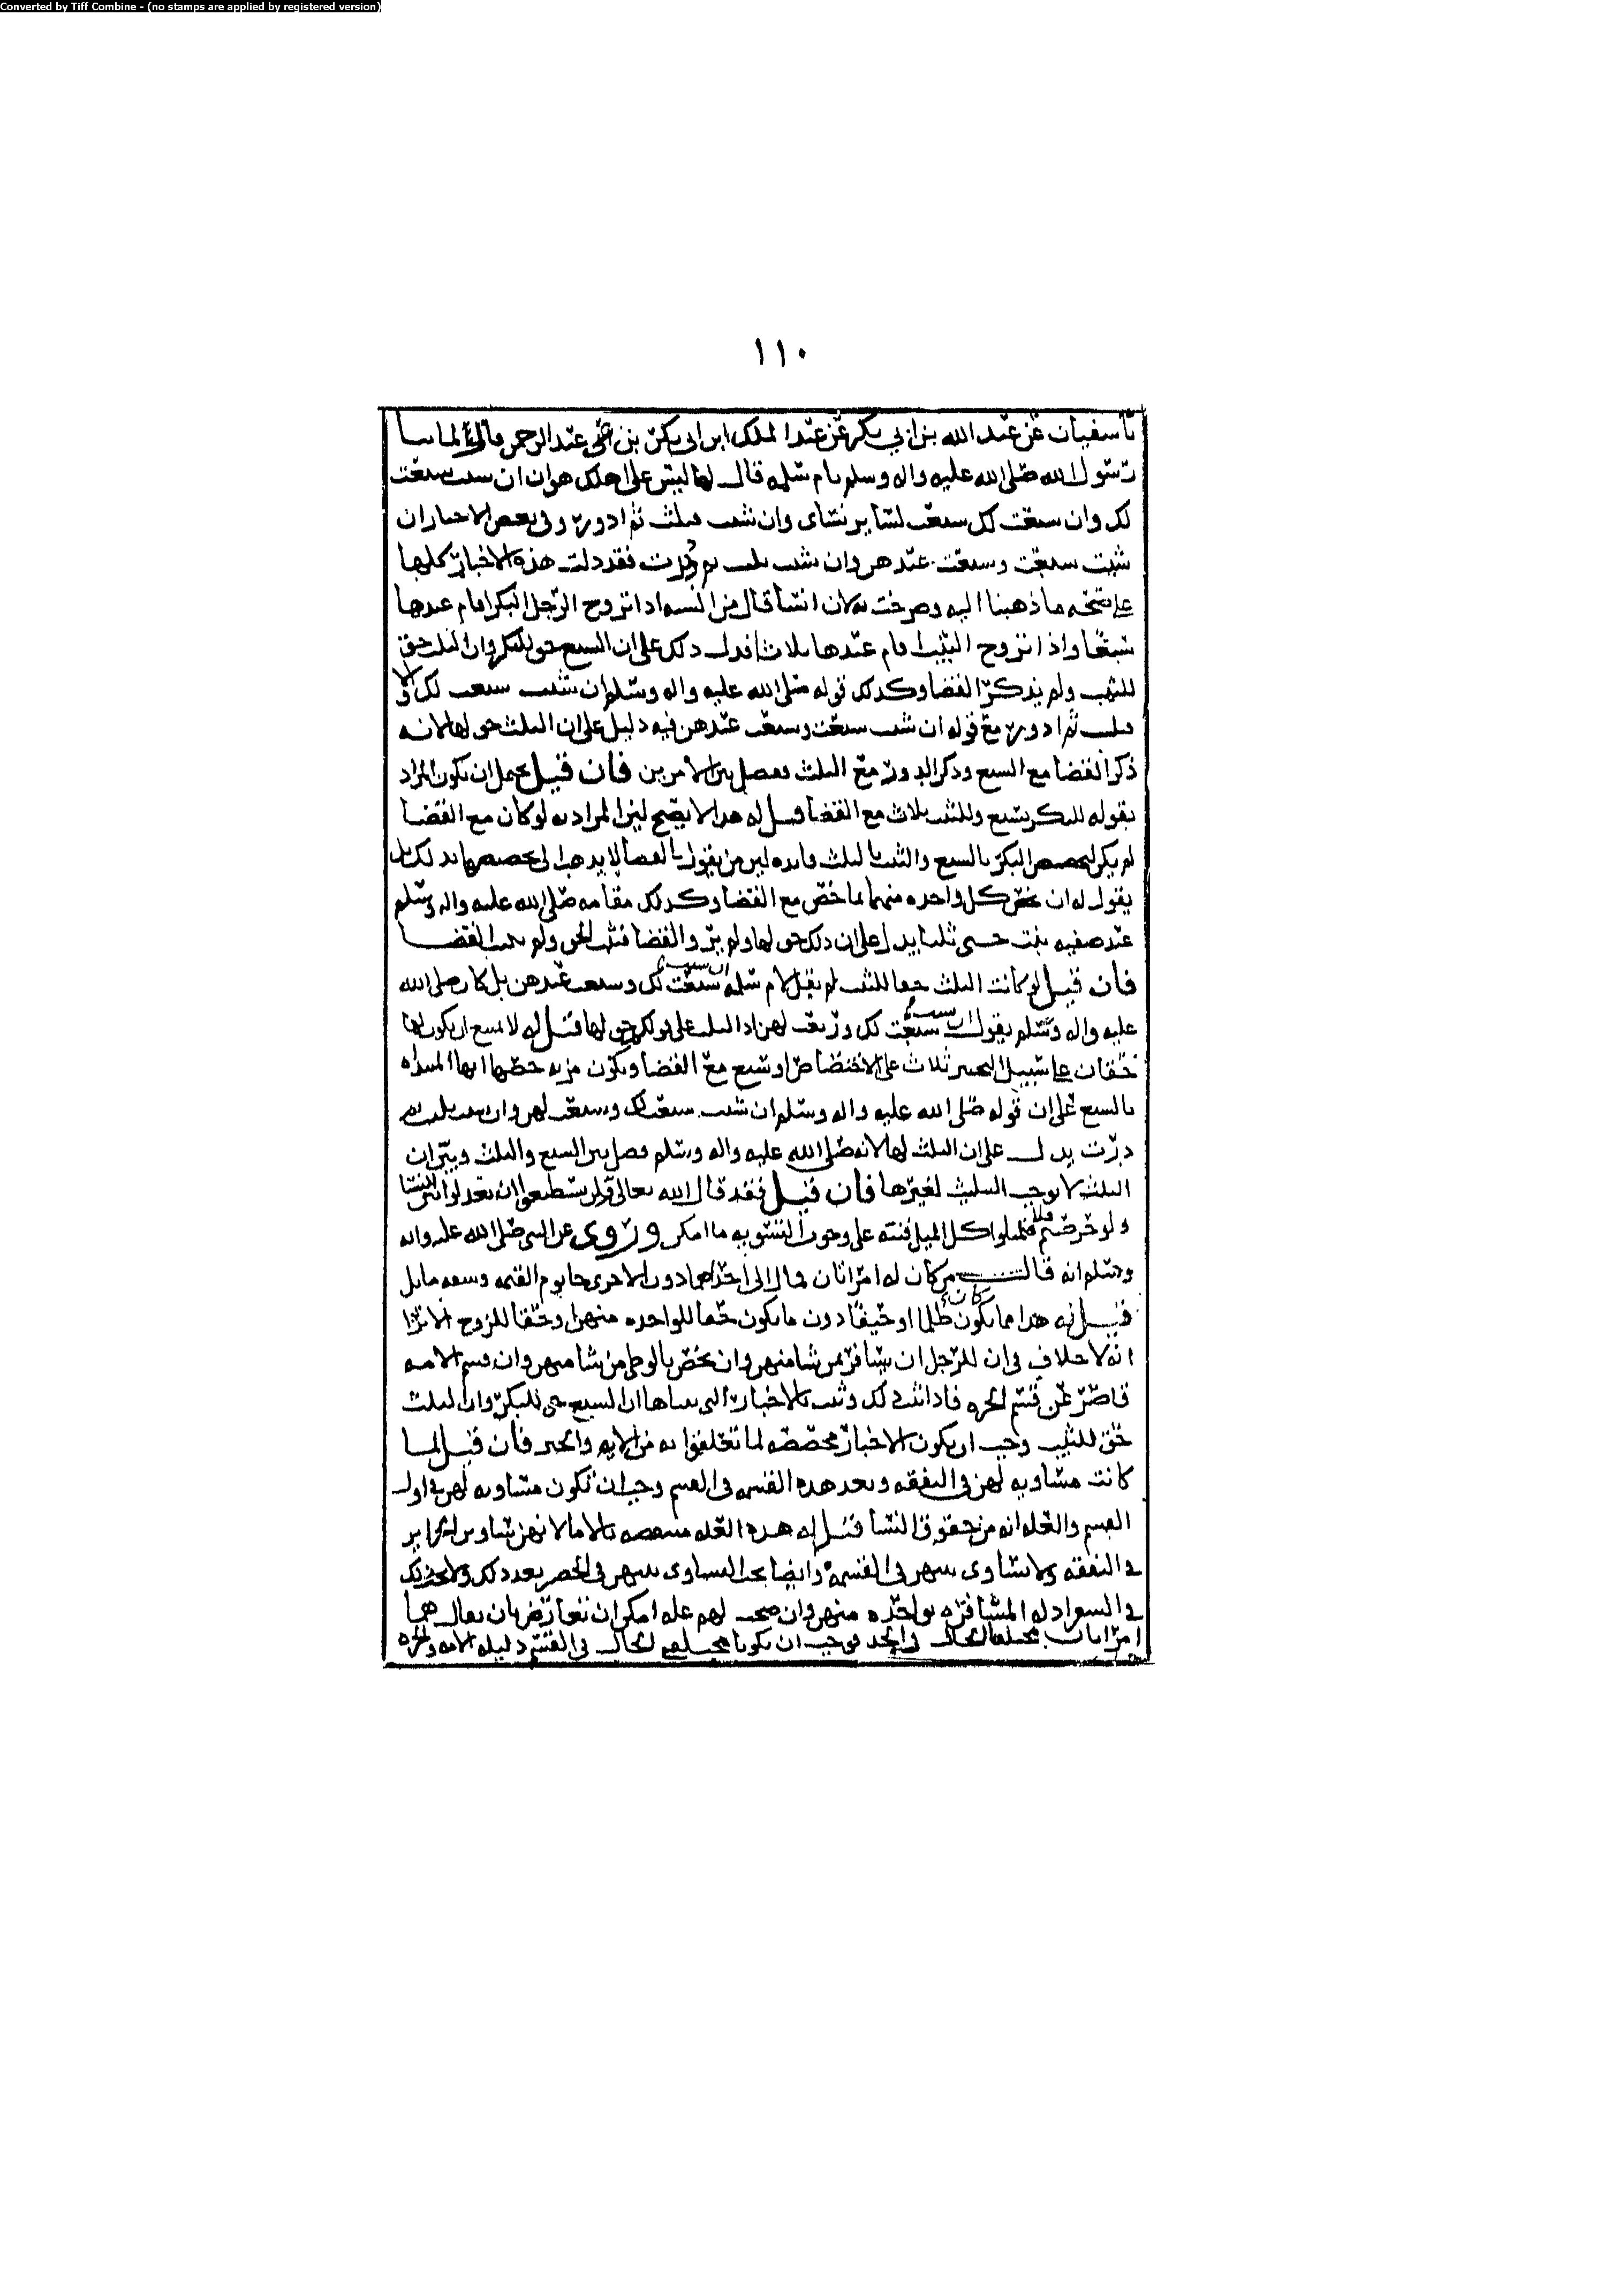 Converted by Tiff Combine - (no stamps are applied by registered version)
١١٠
سفيان عن عبد الله بن ابي بكر عن عبد الملك ابن ابي بكر بن عبد الرحمن قال لما بنا
رسول الله صلى الله عليه واله وسلم بام سلمه قال لها ليس على اهلك هوان ان شيت سبعت
لك وان سبعت لك سبعت لساير نساى وان شيت ثلثت ثم ادور وفى بعض الاخبار ان
شيت سبعت وسبعت عندهن وان شيت ثلثت ثم درت فقد دلت هذه الاخبار كلها
على صحه ما ذهبنا اليه وصرحت به لان انسا قال من السنه اذا تزوج الرجل البكر اقام عندها
سبعا واذا تزوج الثيب اقام عندها ثلاثا فدل ذلك على ان السبع حق للبكر وان الثلث حق
للثيب ولم يذكر القضا وكذلك قوله صلى الله عليه واله وسلم ان شيت سبعت لك والا
ثلثت ثم ادور مع قوله ان شيت سبعت وسبعت عندهن فيه دليل على ان الثلث حق لها لانه
ذكر القضا مع السبع وذكر الدور مع الثلث ففصل بين الامرين فان قيل يحتمل ان يكون المراد
بقوله للبكر سبع وللثيب ثلاث مع القضا قيل له هذا لا يصح لان المراد به لو كان مع القضا
لم يكن لتخصيص البكر بالسبع والثيب بالثلث فايده لان من يقول بالقضا لا يذهب الى تخصيصهما بذلك بل
يقول له ان يخص كل واحده منهما بما خص مع القضا وكذلك مقامه صلى الله عليه واله وسلم
عند صفيه بنت حيي ثلثا يدل على ان ذلك حق لها ولم يرو القضا فثبت الحق ولم يثبت القضا
فان قيل لو كانت الثلث حقا للثيب لم يقل لام سلمه ان شيت سبعت لك وسبعت عندهن بل كان صلى الله
عليه واله وسلم يقول ان شيت سبعت لك وربعت لهن اذ الثلث على قولكم حق لها قيل له لا يمتنع ان يكون لها
حقان على سبيل التخيير ثلاث على الاختصاص او سبع مع القضا ويكون مزيه حقها انها المبداه
بالسبع على ان قوله صلى الله عليه واله وسلم ان شيت سبعت لك وسبعت لهن وان شيت ثلثت ثم
درت يدل على ان الثلث لها لانه صلى الله عليه واله وسلم فصل بين السبع والثلث وبين ان
الثلث لا يوجب التثليث لغيرها فان قيل فقد قال الله تعالى ولن تستطيعوا ان تعدلوا بين النسا
ولو حرصتم فلا تميلوا كل الميل فنبه على وجوب التسويه ما امكن وروى عن النبى صلى الله عليه واله
وسلم انه قال من كان له امراتان فمال الى احداهما دون الاخرى جا يوم القيمه وشقه مايل
قيل له هذا مما يكون كان ظلما او حيفا دون ما يكون حقا للواحده منهن او حقا للزوج الا ترا
انه لا خلاف فى ان للرجل ان يسافر بمن شا منهن وان يخص بالوطى من شا منهن وان قسم الامه
قاصر عن قسم الحره فاذا ثبت ذلك وثبت بالاخبار التى بيناها ان السبع حق للبكر وان الثلث
حق للثيب وجب ان يكون الاخبار مخصصه لما تعلقوا به من الايه والخبر فان قيل لما
كانت مساويه لهن فى النفقه وبعد هذه القسمه فى القسم وجب ان تكون مساويه لهن فى اول
القسم والعله انه من حقوق النسا قيل له هذه العله منتقضه بالاما لانهن يساوين الحراير
فى النفقه ولا تساوى بينهن فى القسمه وايضا يجب التساوى بينهن فى الحضر بعد ذلك ولا يجب ذلك
فى السفر اذ له المسافره بواحده منهن وان صحت لهم عله امكن ان تعارض بان يقال هما
امراتان مختلفتا الحال فوجب ان يكونا مختلفتى الحال فى القسم دليله الامه والحره